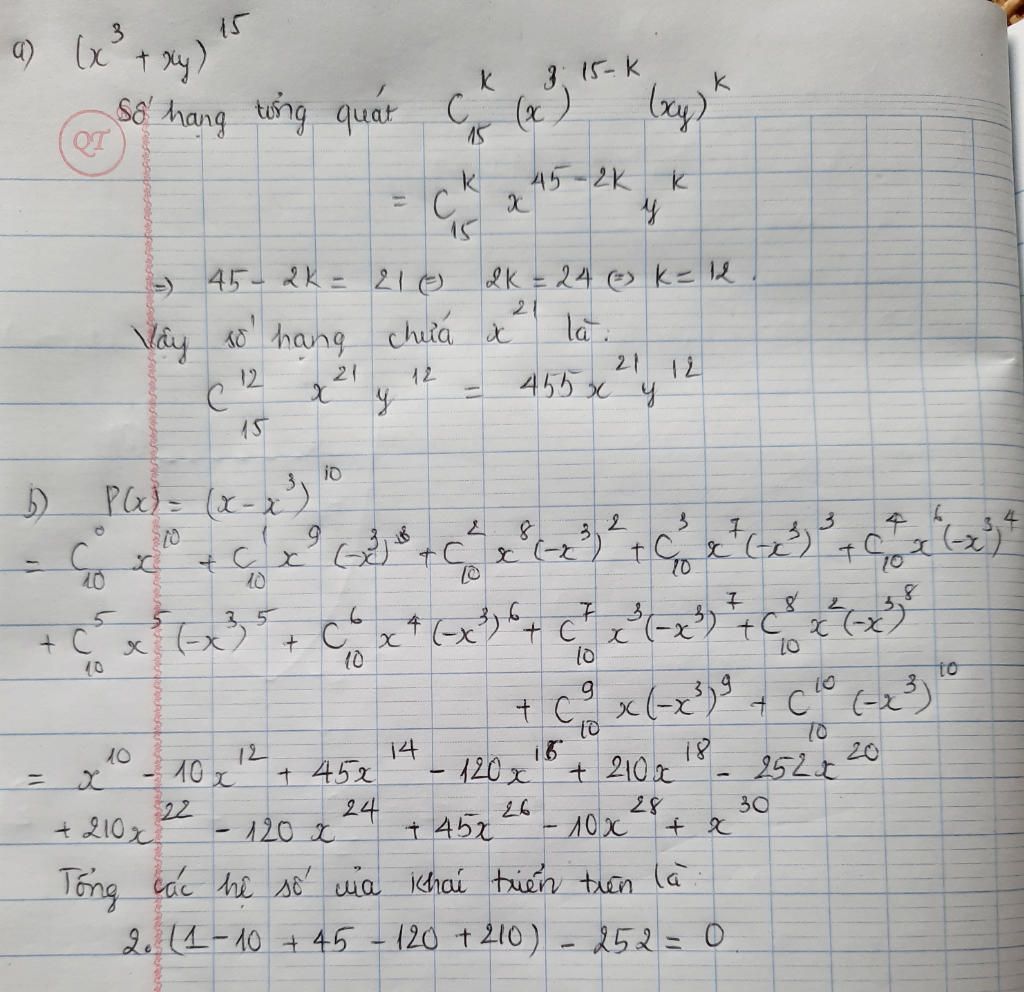 a) (x³ + xy)¹⁵
Số hạng tổng quát C₁₅ᵏ (x³)¹⁵⁻ᵏ (xy)ᵏ
QT
= C₁₅ᵏ x⁴⁵⁻²ᵏ yᵏ
=> 45 - 2k = 21 <=> 2k = 24 <=> k = 12.
Vậy số hạng chứa x²¹ là:
C₁₅¹² x²¹ y¹² = 455x²¹y¹²
b) P(x) = (x - x³)¹⁰
= C₁₀⁰ x¹⁰ + C₁₀¹ x⁹ (-x³) + C₁₀² x⁸ (-x³)² + C₁₀³ x⁷ (-x³)³ + C₁₀⁴ x⁶ (-x³)⁴
+ C₁₀⁵ x⁵ (-x³)⁵ + C₁₀⁶ x⁴ (-x³)⁶ + C₁₀⁷ x³ (-x³)⁷ + C₁₀⁸ x² (-x³)⁸
+ C₁₀⁹ x (-x³)⁹ + C₁₀¹⁰ (-x³)¹⁰
= x¹⁰ - 10x¹² + 45x¹⁴ - 120x¹⁶ + 210x¹⁸ - 252x²⁰
+ 210x²² - 120x²⁴ + 45x²⁶ - 10x²⁸ + x³⁰
Tổng các hệ số của khai triển trên là:
2.(1 - 10 + 45 - 120 + 210) - 252 = 0